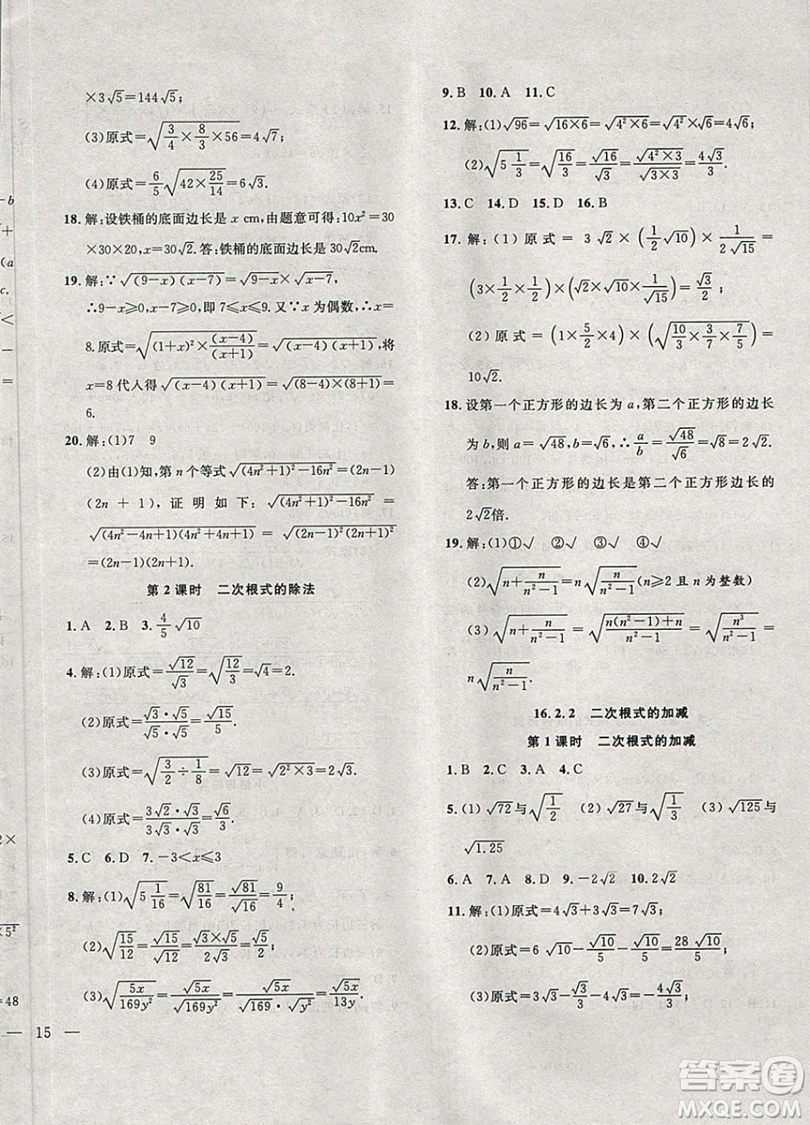 ×3√5=144√5;
(3)原式=√(3/4×8/3×56)=4√7;
(4)原式=6/5√(42×25/14)=6√3.
18.解:设铁桶的底面边长是x cm,由题意可得:10x²=30
×30×20,x=30√2.答:铁桶的底面边长是30√2cm.
19.解:∵√((9-x)(x-7))=√(9-x)×√(x-7),
∴9-x≥0,x-7≥0,即7≤x≤9.又∵x为偶数,∴x=
8.原式=√((1+x)²×((x-4)/(x+1)))=√((x-4)(x+1)),将
x=8代人得√((x-4)(x+1))=√((8-4)×(8+1))=
6.
20.解:(1)7 9
(2)由(1)知,第n个等式√((4n²+1)²-16n²)=(2n-1)
(2n+1),证明如下:√((4n²+1)²-16n²)=
√((4n²-4n+1)(4n²+4n+1))=√((2n-1)²(2n+1)²)
=(2n-1)(2n+1).
第2课时 二次根式的除法
1.A 2.B 3.4/5√10
4.解:(1)原式=√12/√3=√(12/3)=√4=2.
(2)原式=(√3·√5)/(√5·√5)=√15/5.
(3)原式=√(3/2÷1/8)=√12=√(2²×3)=2√3.
(4)原式=(3√2·√3)/(3√3·√3)=√6/3.
5.C 6.D 7.-3<x≤3
8.解:(1)√(5 1/16)=√(81/16)=√81/√16=9/4;
(2)√(15/12)=√15/√12=(√15×√3)/(2√3×√3)=√5/2;
(3)√(5x/169y²)=√5x/√169y²=√5x/(√169·√y²)=√5x/13y.
— 15 —
9.B 10.A 11.C
12.解:(1)√96=√(16×6)=√(4²×6)=4√6.
(2)√(5 1/3)=√(16/3)=√16/√3=√(4²×3)/√(3×3)=4√3/3.
13.C 14.D 15.D 16.B
17.解:(1)原式=3√2×(1/2√10)×1/(2√15)=
(3×1/2×1/2)×(√2×√10×1/√15)=√3/2.
(2)原式=(1×5/2×4)×(√(10/3×3/7×7/5))=
10√2.
18.设第一个正方形的边长为a,第二个正方形的边长
为b,则a=√48,b=√6,∴a/b=√48/√6=2√2.
答:第一个正方形的边长是第二个正方形的边长的
2√2倍.
19.解:(1)①√ ②√ ③√ ④√
(2)√(n+n/(n²-1))=n√(n/(n²-1))(n≥2且n为整数)
(3)√(n+n/(n²-1))=√((n(n²-1)+n)/(n²-1))=√(n³/(n²-1))=
n√(n/(n²-1)).
16.2.2 二次根式的加减
第1课时 二次根式的加减
1.B 2.C 3.A 4.C
5.(1)√72与√(1/2) (2)√27与√(1/3) (3)√125与
√1.25
6.A 7.A 8.D 9.-2√2 10.2√2
11.解:(1)原式=4√3+3√3=7√3;
(2)原式=6√10-√10/5-√10/5=28√10/5;
(3)原式=√3/3-2√3+4√3/3=-√3/3;
答案圈
MXQE.COM